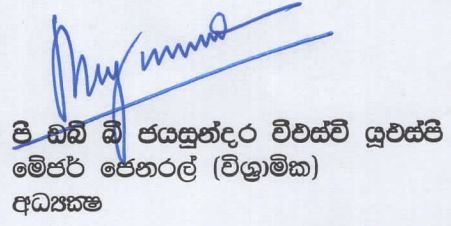 පී ඩබ් බී ජයසුන්දර වීඑස්වී යූඑස්පී
මේජර් ජෙනරල් (විශ්‍රාමික)
අධ්‍යක්ෂ